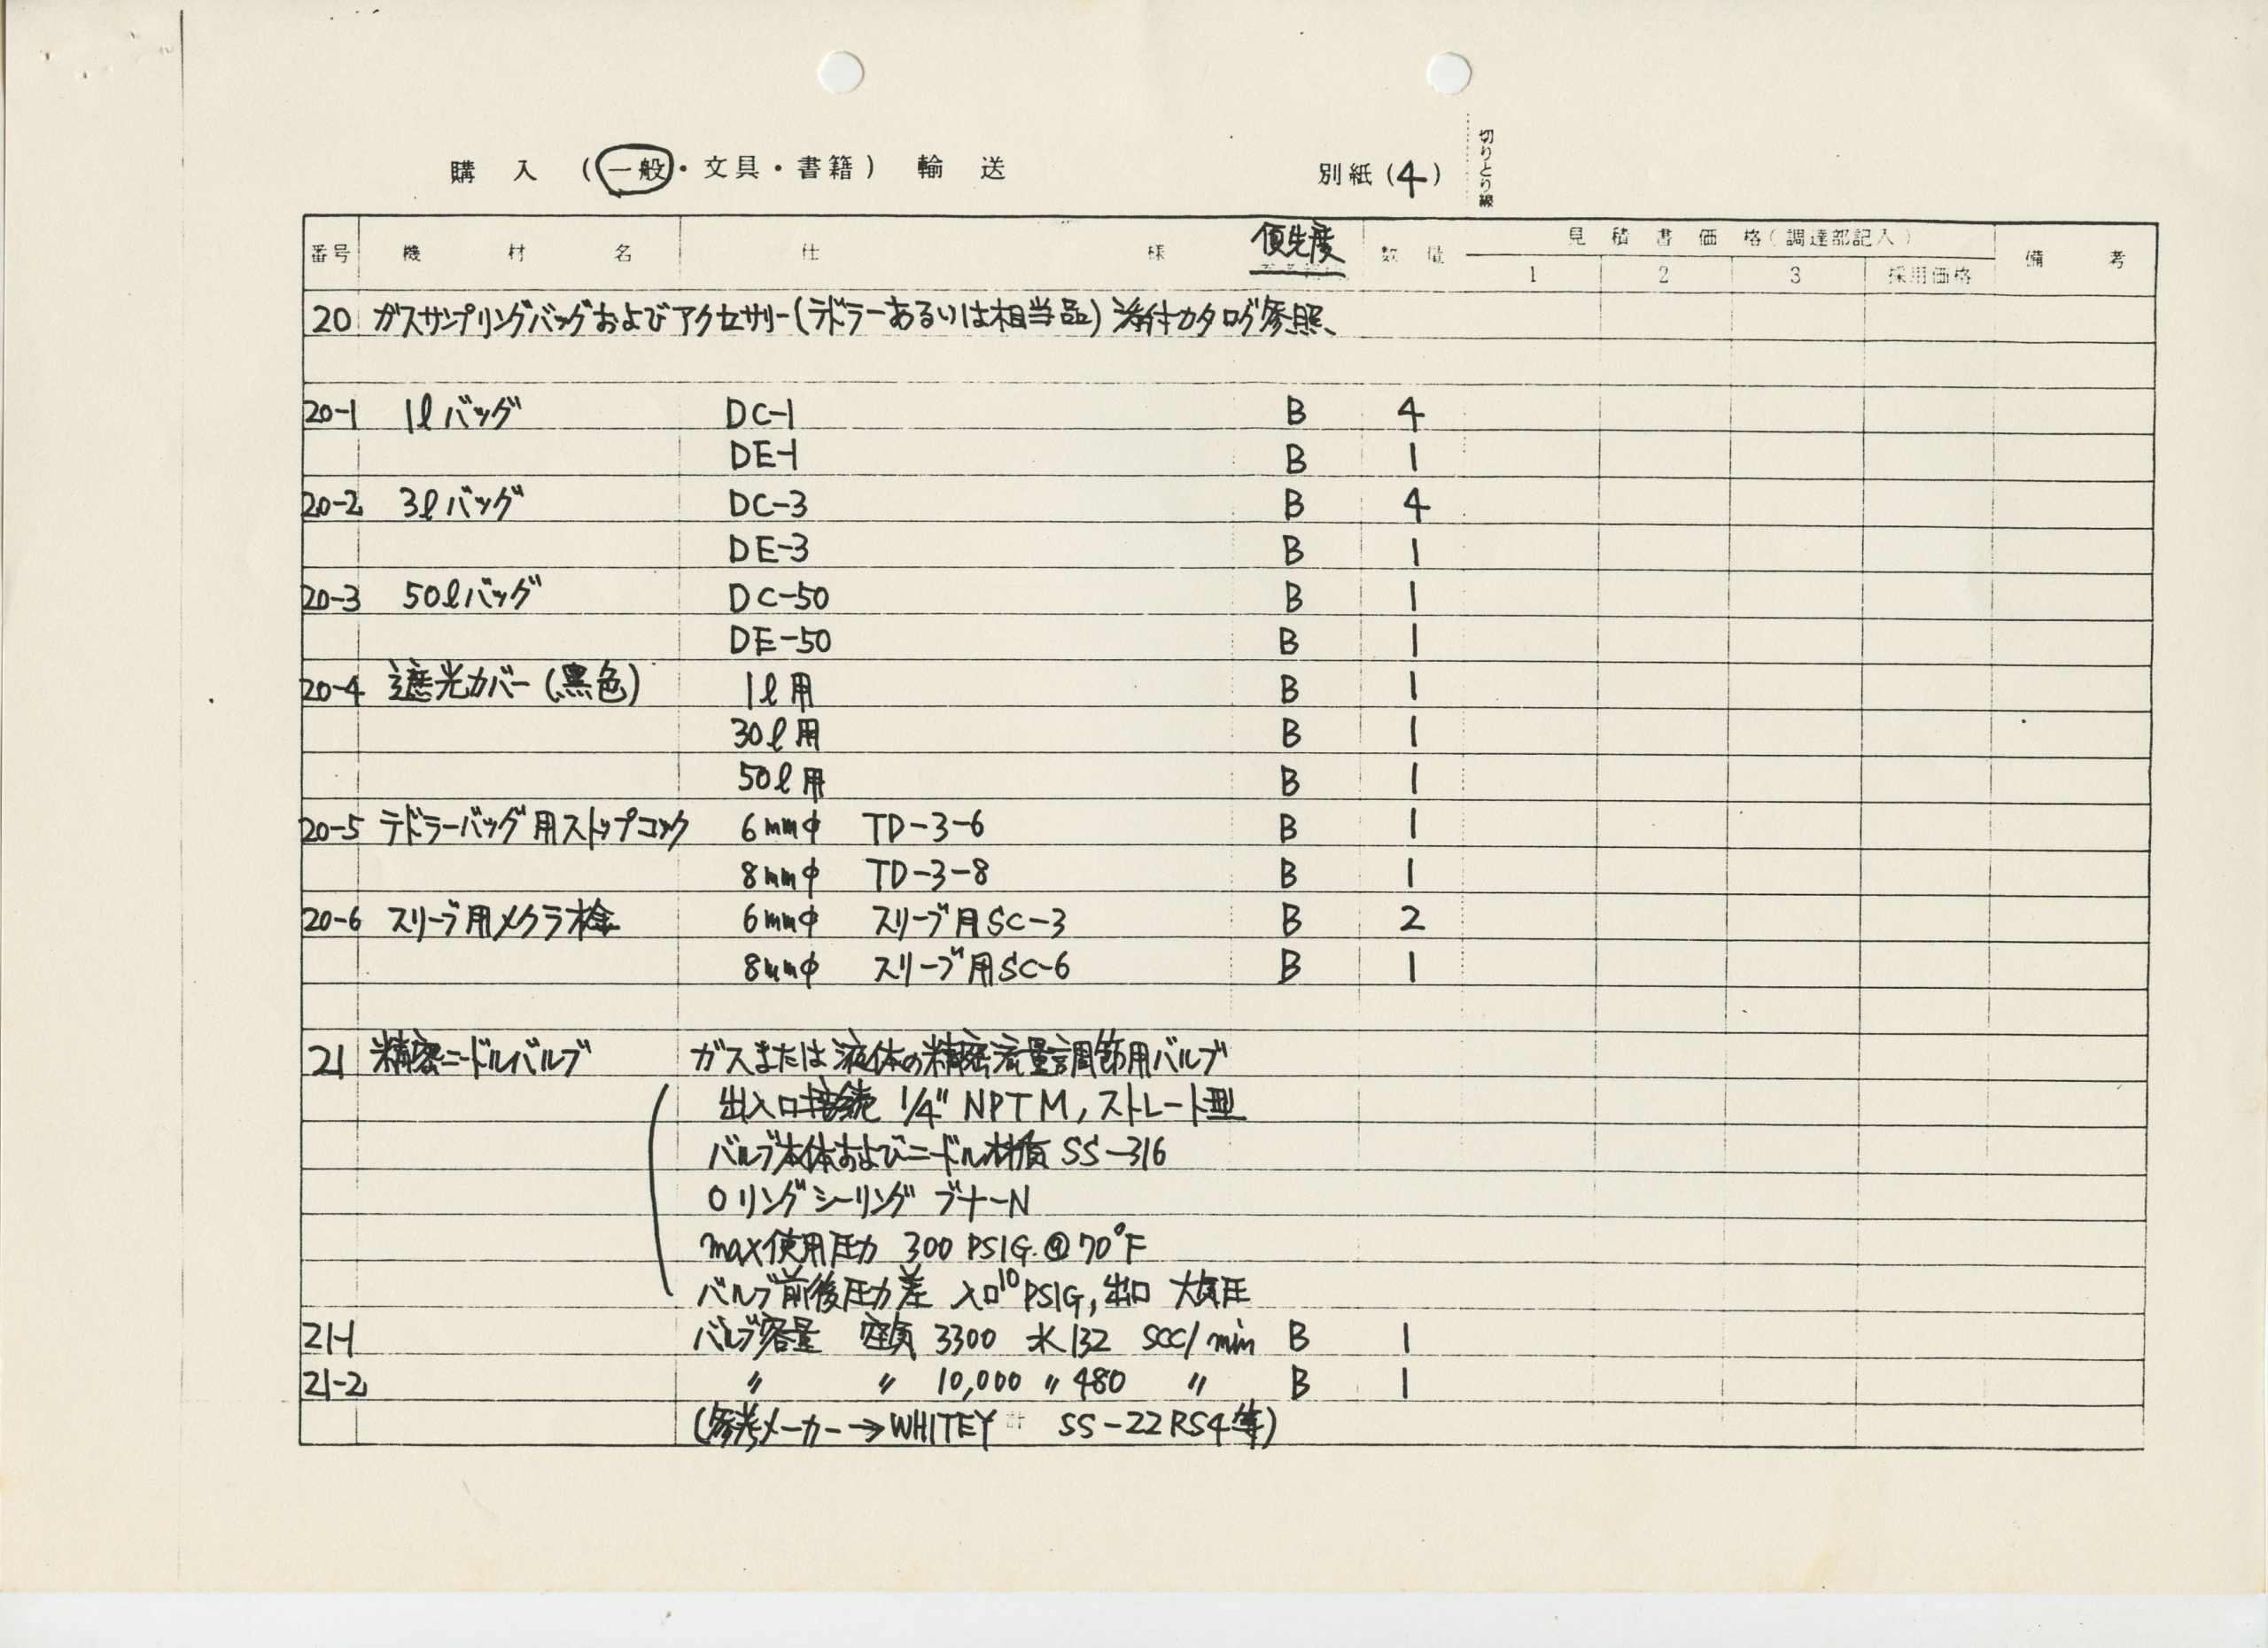 購 入 (一般・文具・書籍) 輸 送 別紙(4)
切りとり線
番号 機 材 名 仕 様 優先度 数 量 見 積 書 価 格(調達部記入) 備 考
1 2 3 採用価格
20 ガスサンプリングバッグおよびアクセサリー(テドラーあるいは相当品) 添付カタログ参照、
20-1 1ℓバッグ DC-1 B 4
DE-1 B 1
20-2 3ℓバッグ DC-3 B 4
DE-3 B 1
20-3 50ℓバッグ DC-50 B 1
DE-50 B 1
20-4 遮光カバー(黒色) 1ℓ用 B 1
30ℓ用 B 1
50ℓ用 B 1
20-5 テドラーバッグ用ストップコック 6mmφ TD-3-6 B 1
8mmφ TD-3-8 B 1
20-6 スリーブ用メクラ栓 6mmφ スリーブ用SC-3 B 2
8mmφ スリーブ用SC-6 B 1
21 精密ニードルバルブ ガスまたは液体の精密流量調節用バルブ
出入口接続 1/4" NPTM, ストレート型
バルブ本体およびニードル材質 SS-316
Oリングシーリング ブナーN
max使用圧力 300 PSIG. @70°F
バルブ前後圧力差 入口10 PSIG, 出口 大気圧
21-1 バルブ容量 空気 3300 水 132 SCC/min B 1
21-2 〃 〃 10,000 〃 480 〃 B 1
(参考メーカー→WHITEY 計 SS-22RS4等)